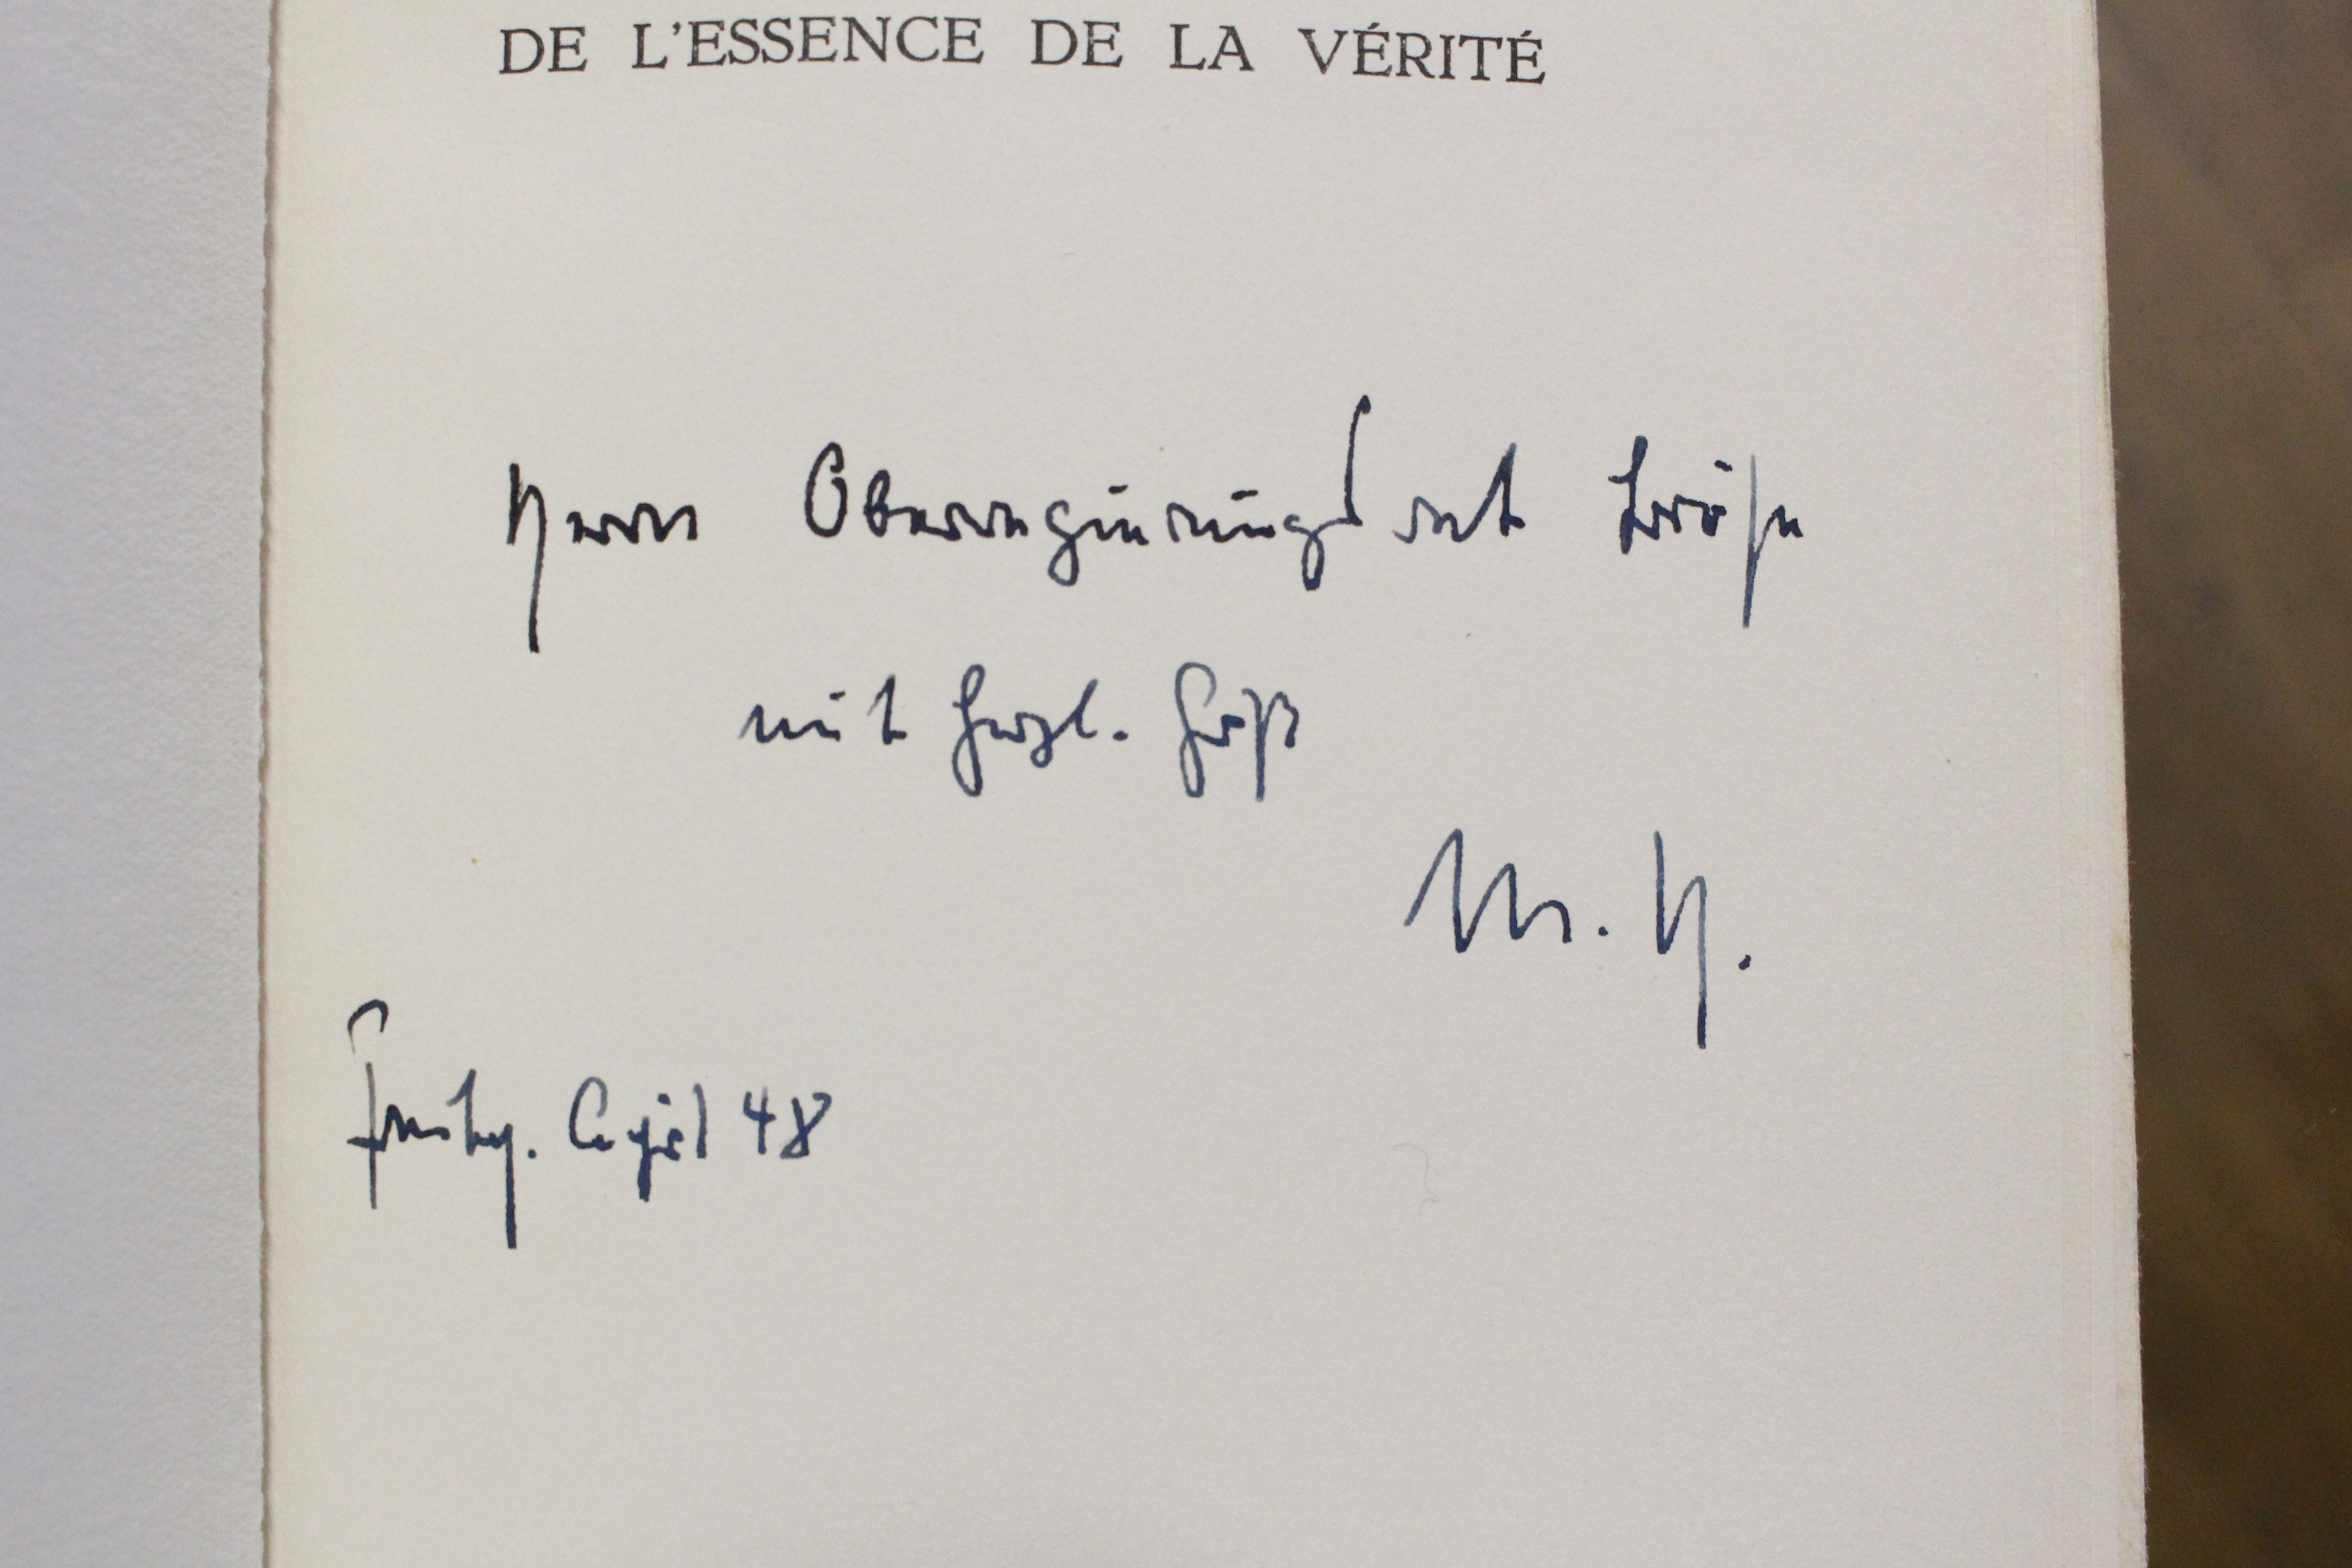 DE L'ESSENCE DE LA VÉRITÉ
Herrn Oberregierungsrat
mit herzl. Gruß
M. H.
Freibg. April 48